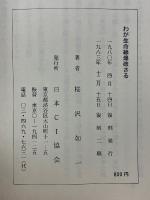 わが生命線爆破さる
一九八〇年 四月 十四日 復刻発行
一九八三年 十二月 十五日 復刻二版
著者 桜沢如一
発行所 日本CI協会
東京都渋谷区大山町十一ノ五
振替 東京〇ー一九四一二五
電話 〇三・四六九・七六三一(代)
800円